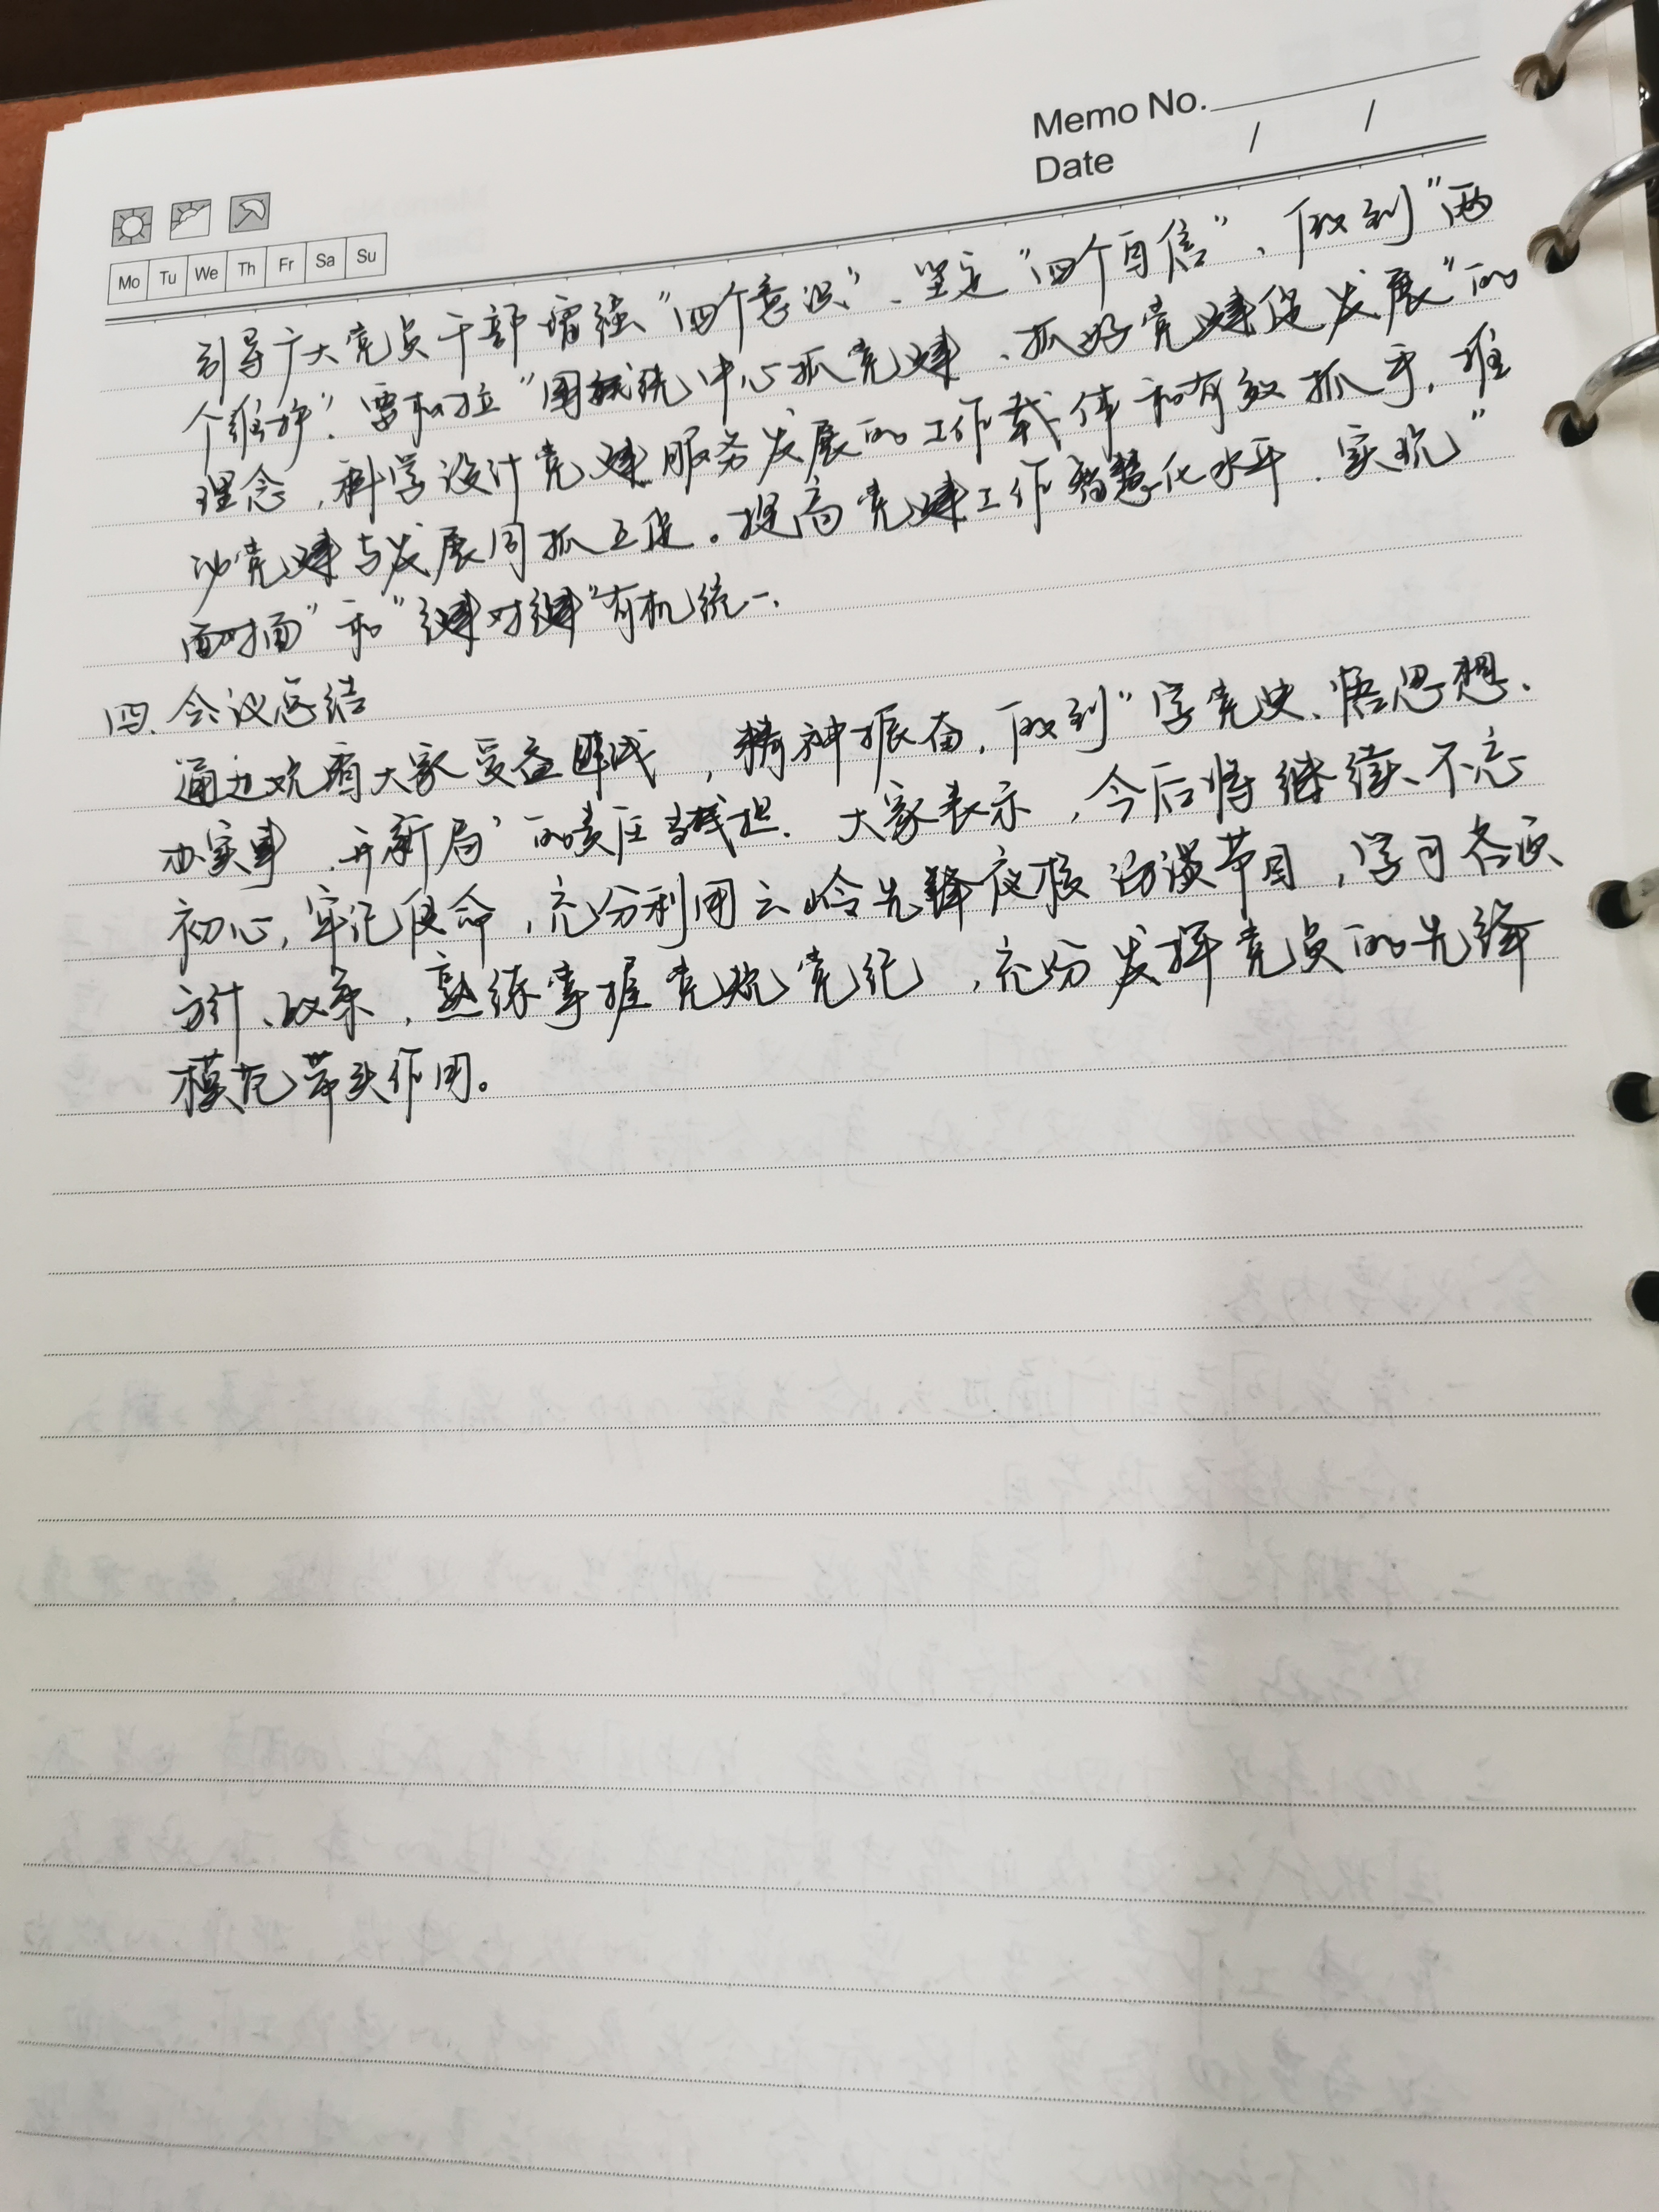 Memo No.
Date / /
Mo Tu We Th Fr Sa Su
引导广大党员干部增强“四个意识”、坚定“四个自信”、做到“两
个维护”。要树立“围绕中心抓党建、抓好党建促发展”的
理念，科学设计党建服务发展的工作载体和有效抓手，推
动党建与发展同抓互促。提高党建工作智慧化水平，实现“
面对面”和“键对键”有机统一。
四、会议总结
通过观看大家受益匪浅，精神振奋，做到“学党史、悟思想、
办实事、开新局”的责任担. 大家表示，今后将继续、不忘
初心，牢记使命，充分利用云岭先锋夜校访谈节目，学习各项
方针、政策，熟练掌握党规党纪，充份发挥党员的先锋
模范带头作用。